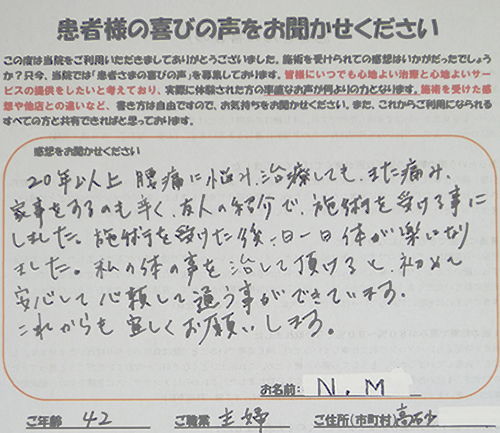 患者様の喜びの声をお聞かせください
この度は当院をご利用いただきましてありがとうございました。施術を受けられての感想はいかがだったでしょ
うか？只今、当院では「患者さまの喜びの声」を募集しております。皆様にいつでも心地よい治療と心地よいサー
ビスの提供をしたいと考えており、実際に体験された方の率直なお声が何よりの力となります。施術を受けた感
想や他店との違いなど、書き方は自由ですので、お気持ちをお聞かせください。また、これからご利用になられる
すべての方と共有できればと思っております。
感想をお聞かせください
20年以上 腰痛に悩み、治療しても、また痛み、
家事をするのも辛く、友人の紹介で、施術を受ける事に
しました。施術を受けた後、一日一日体が楽になり
ました。私の体の事を治して頂けると、初めて
安心して 心頼して通う事ができています。
これからも 宜しくお願いします。
お名前: N.M
ご年齢 42 ご職業 主婦 ご住所(市町村) 高石